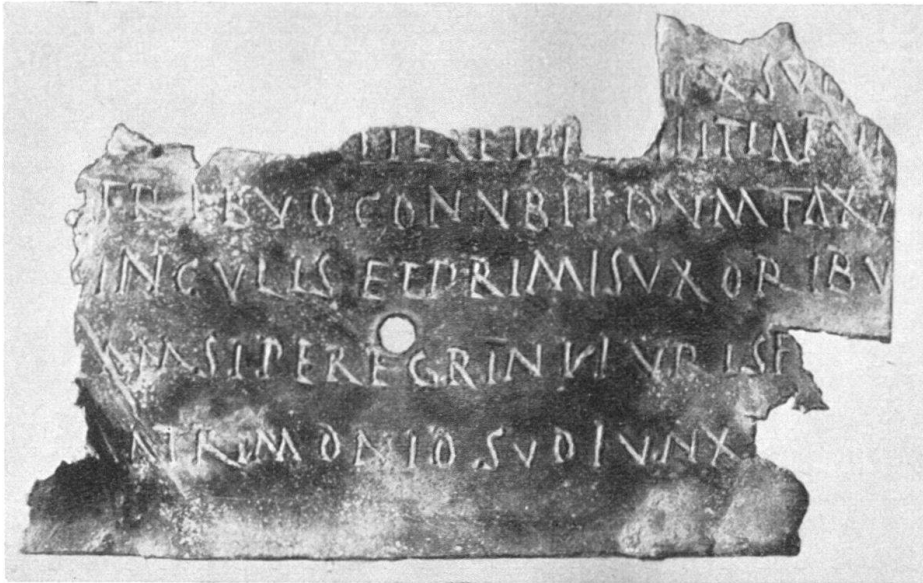 ILITIAFV
TRIBVO CONVBII·DVMTAXA
INGVLIS ET PRIMIS VXORIBV
AMSI PEREGRINI IVRIS F
ATRIMONIO SVO IVNX